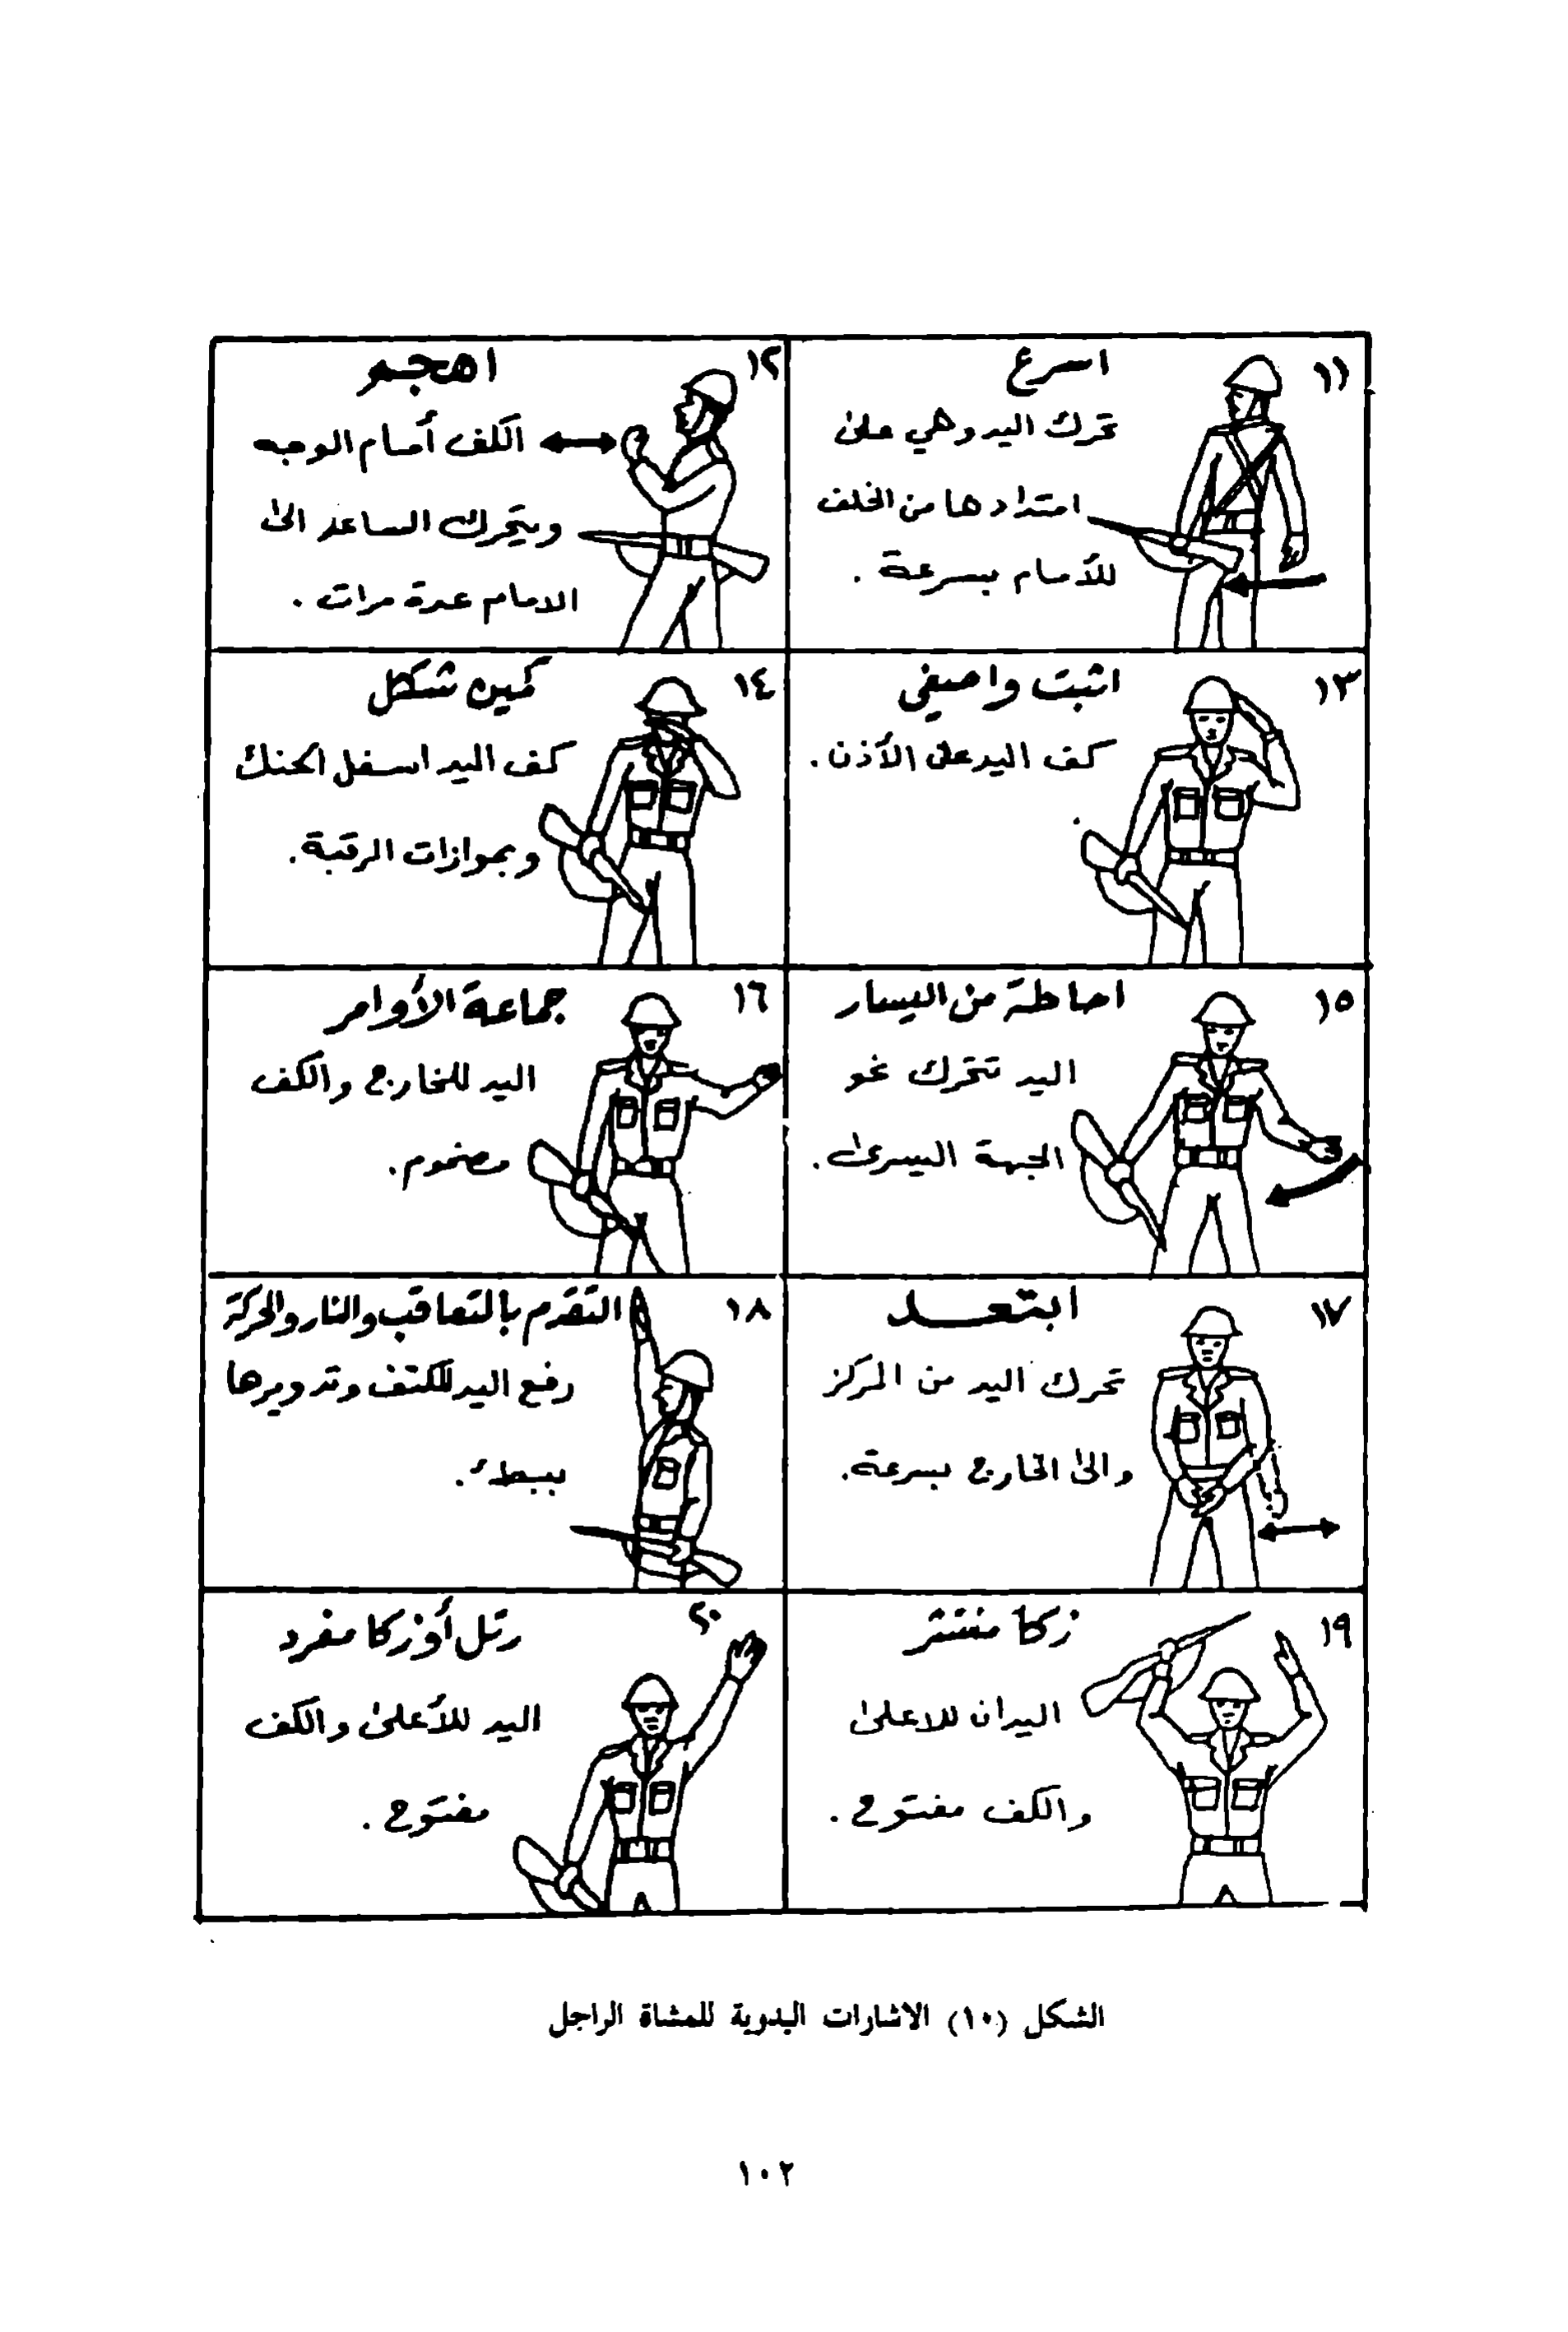 ١١
اسرع
تحرك اليد وهي على
امتدادها من الخلف
للأمام بسرعة .
١٢
اهجم
الكف أمام الوجه
ويتحرك الساعد الى
الامام عدة مرات .
١٣
اثبت واصغي
كف اليد على الأذن .
١٤
كمين شكل
كف اليد اسفل الحنك
وبموازات الرقبة .
١٥
احاطة من اليسار
اليد تتحرك نحو
الجهة اليسرى .
١٦
جماعة الأوامر
اليد للخارج والكف
مضموم .
١٧
ابتعد
تحرك اليد من المركز
والى الخارج بسرعة .
١٨
التقدم بالتعاقب والنار والحركة
رفع اليد للكتف وتدويرها
ببطء .
١٩
زكا منتشر
اليدان للاعلى
والكف مفتوح .
٢٠
رتل أو زكا مفرد
اليد للأعلى والكف
مفتوح .
الشكل (١٠) الاشارات اليدوية للمشاة الراجل
١٠٢